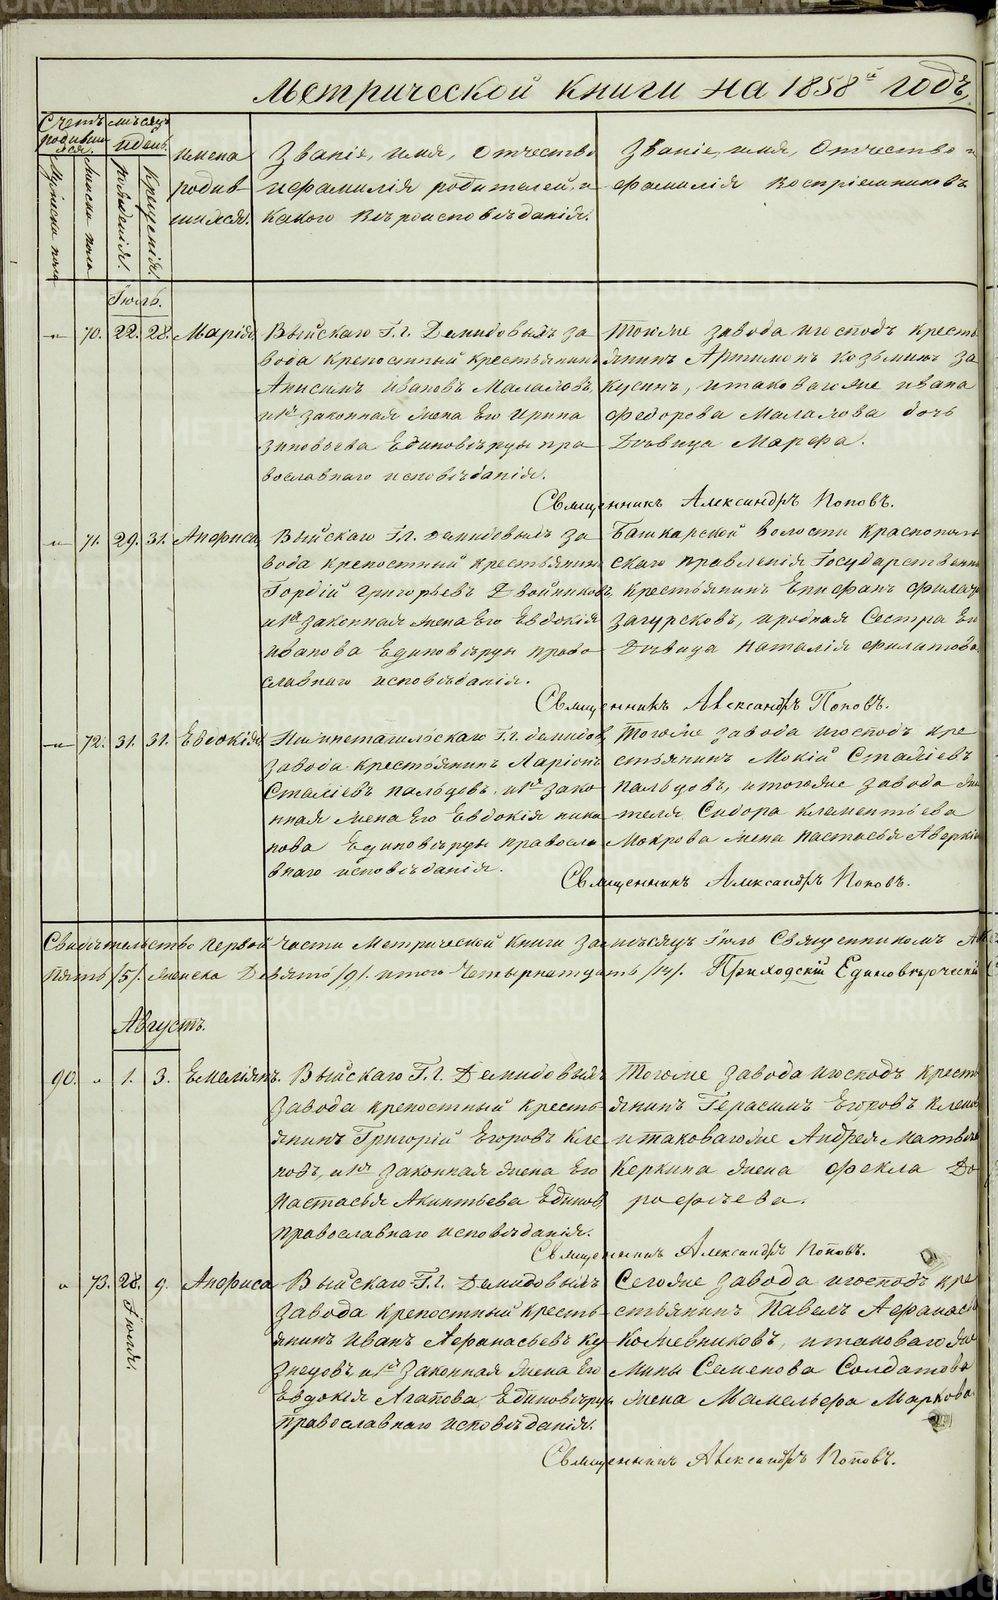 Метрической книги на 1858й годъ,
Счетъ родившихся.
Мужеска пола
Женска пола
месяцъ и день.
рожденія.
крещенія.
имена родившихся.
Званіе, имя, отчество и фамилія родителей, и какого вѣроисповѣданія.
Званіе, имя, отчество и фамилія воспріемниковъ
Іюль.
-"- 70. 22. 28. Марія,
Выйскаго Г.г. Демидовыхъ за-
вода крепостный крестьянинъ
Анисимъ Ивановъ Маламовъ,
законная жена Его Ирина
Зиновьева Единовѣрцы пра-
вославнаго исповѣданія.
Тогоже завода и господъ кресть-
янинъ Артимонъ Козьминъ За-
кусинъ, и таковагоже Ивана
Федорова Маламова дочь
Дѣвица Марфа.
Священникъ Александръ Поповъ.
-"- 71. 29. 31. Анфиса,
Выйскаго Г.г. Демидовыхъ за-
вода крепостный крестьянинъ
Гордій Григорьевъ Двойниковъ,
законная жена Его Евдокія
Иванова Единовѣрцы право-
славнаго исповѣданія.
Башкарской волости Краснополь
скаго правленія Государствен
крестьянинъ Епифанъ
Загурсковъ, и родная Сестра Ег
Дѣвица Наталія Филатова
Священникъ Александръ Поповъ.
-"- 72. 31. 31. Евдокія,
Нижнетагильскаго Г.г. Демидов.
завода крестьянинъ Ларіонъ
Стахіевъ Пальцовъ, зако-
нная жена Его Евдокія Ника-
нова Единовѣрцы правосла-
внаго исповѣданія.
Тогоже завода и господъ кре-
стьянинъ Мокій Стахіевъ
Пальцовъ, и тогоже завода жи
теля Сидора Клементьева
Мокрова жена Настасья Аверкіе
Священникъ Александръ Поповъ.
Свидѣтельство первой части Метрической книги за месяцъ Іюль Священникомъ
пять /5/. женска Девять /9/. итого Четырнатцать /14/. Приходскій Единовѣрческій
Августъ.
90. " 1. 3. Емеліянъ.
Выйскаго Г.г. Демидовыхъ
завода крепостный кресть-
янинъ Григорій Егоровъ Кле-
новъ, законная жена Его
Настасья Акинтьева Единов,
православнаго исповѣданія.
Тогоже завода и господъ кресть
янинъ Герасимъ Егоровъ Кленов
и таковагоже Андрея Матвѣе
Керкина жена Фекла До-
рофѣева.
Священникъ Александръ Поповъ.
" 73. 28. Іюля. 9. Анфиса
Выйскаго Г.г. Демидовыхъ
завода крепостный кресть-
янинъ Иванъ Афанасьевъ Ку-
знецовъ законная жена Его
Евдокія Агапова, Единовѣрцы
православнаго исповѣданія.
Сегоже завода и господъ кре-
стьянинъ Павелъ Афанась
Кожевниковъ, и таковагоже
Мины Семенова Солдатова
жена Мамельфа Маркова
Священникъ Александръ Поповъ.
METRIKI.GASO-URAL.RU